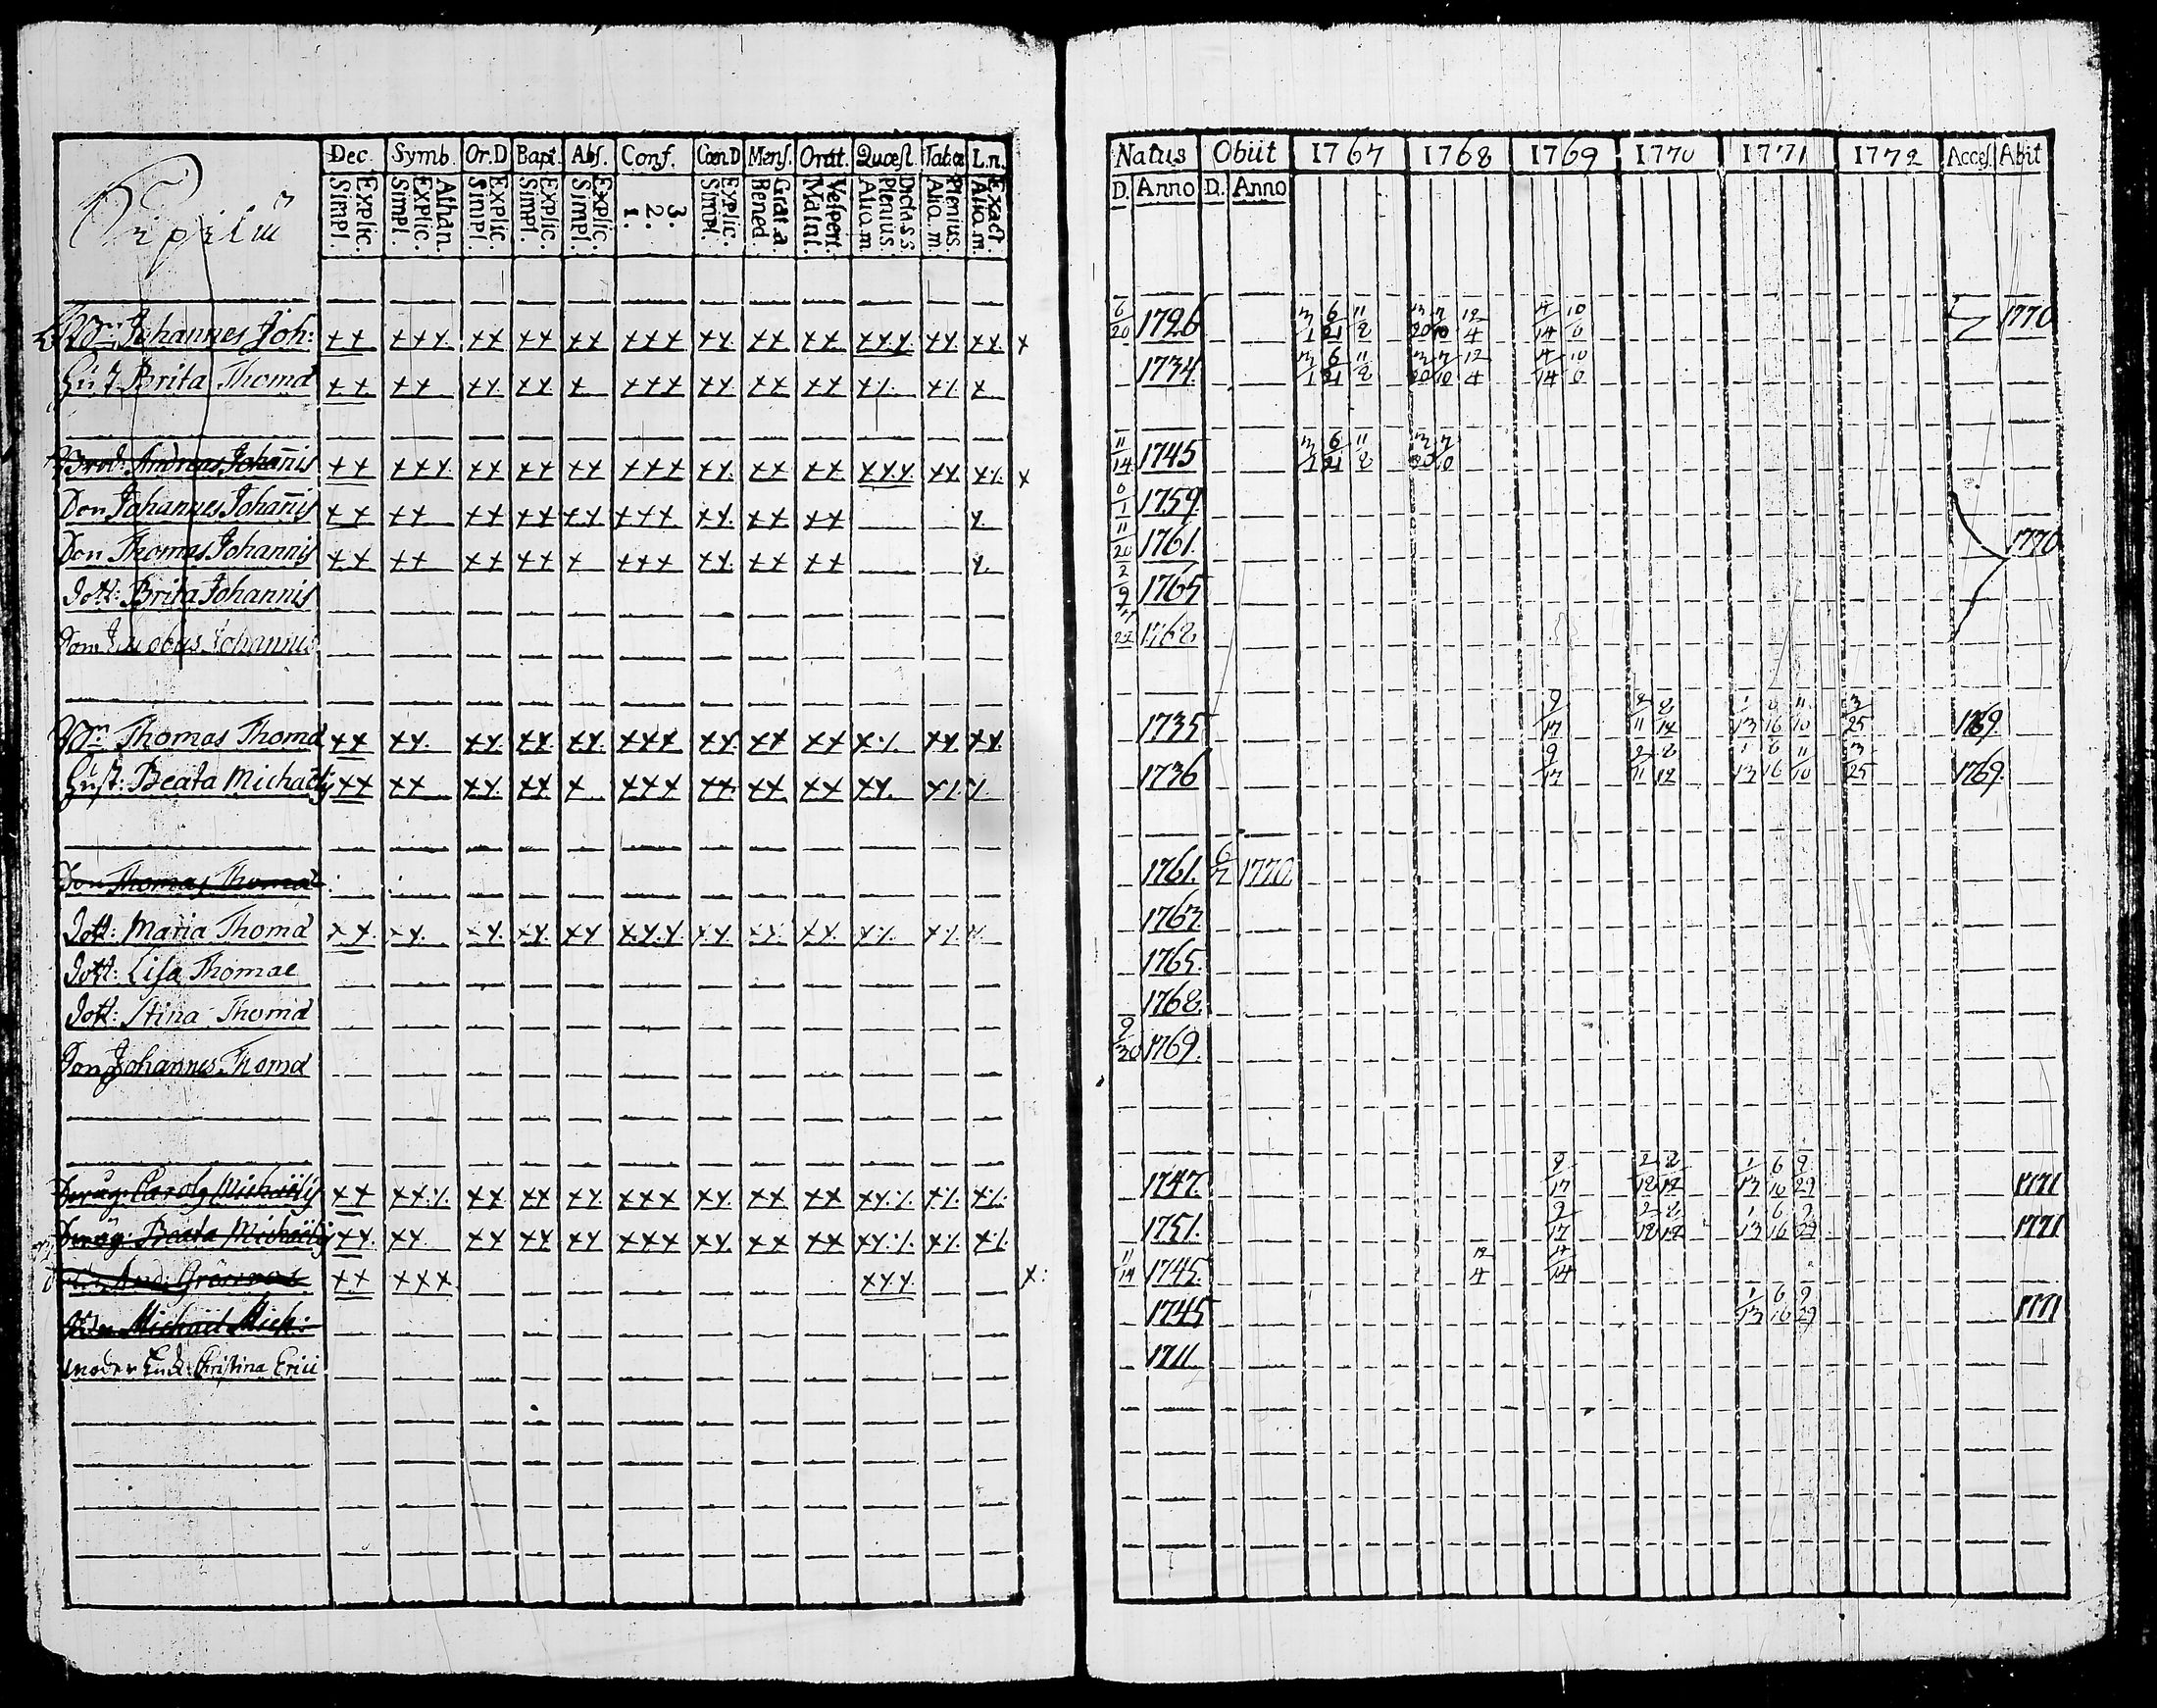 Dec. Symb. Or.D Bapt. Abs. Conf. Cœn D Mens. Orat. Quæst. Tab.œ L.n.
Explic. Simpl. Athan. Explic. Simpl. Explic. Simpl. Explic. Simpl. Explic. Simpl. 3. 2. 1. Explic. Simpl. Grat.a Bened. Vespert. Matut. Dicta s.s. Plenius. Aliq.m. Plenius. Aliq.m. Exact. Aliq.m.
Johannes Joh: xx xxx xx xx xx xxx xx xx xx xxx xx xx x
Hust. Brita Thomæ xx xx xx xx x xxx xx xx xx x x x
Brod. Andreas Johan̄is xx xxx xx xx xx xxx xx xx xx xxx xx x x
Son Johannes Johan̄is xx xx xx xx xx xxx xx xx xx x
Son Thomas Johannis xx xx xx xx x xxx xx xx xx x
dott: Brita Johannis
Son Jacobus Johannis
Thomas Thomæ xx xx xx xx xx xxx xx xx xx x xx xx
Hust: Beata Michaëlis xx xx xx xx x xxx xx xx xx xx x
Son Thomas Thomæ
dott: Maria Thomæ xx xx xx xx xx xxx xx xx xx x x
dott: Lisa Thomae
dott: Stina Thomæ
Son Johannes Thomæ
Michaëlis xx xx xx xx xx xxx xx xx xx xx x x
Beata Michaëlis xx xx xx xx xx xxx xx xx xx xx x x
And: xx xxx xxx x:
Michaël Mich:
moder Christina Erici
Natus Obiit 1767 1768 1769 1770 1771 1772 Acces. Abit
D. Anno D. Anno
6/20 1726 3/1 6/21 11/8 3/20 7/10 12/4 4/14 10/6 1770
1734 3/1 6/21 11/8 3/20 7/10 12/4 4/14 10/6
11/14 1745 3/1 6/21 11/8 3/20 7/10
1759
11/20 1761 1770
2/9 1765
1768
1735 9/17 2/11 8/12 1/13 6/16 11/10 3/25 1769
1736 9/17 2/11 8/12 1/13 6/16 11/10 3/25 1769
1761 1770
1763
1765
1768
9/30 1769
1747 9/17 2/18 8/12 1/13 6/16 9/29 1771
1751 9/17 2/18 8/12 1/13 6/16 9/29 1771
11/14 1745 12/4 4/14
1745 1/13 6/16 9/29 1771
1711